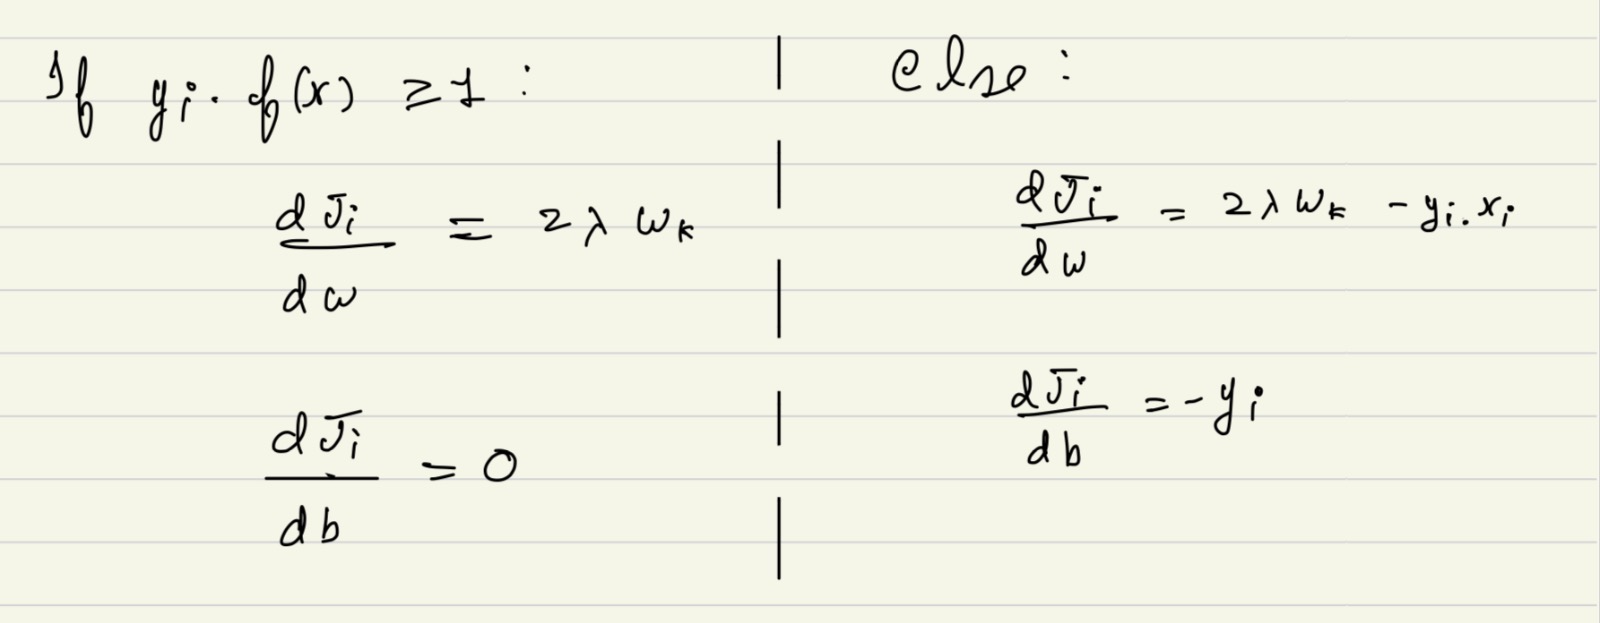 If yi . f(x) ≥ 1 :
dJi/dw = 2λwk
dJi/db = 0
else :
dJi/dw = 2λwk - yi.xi
dJi/db = -yi